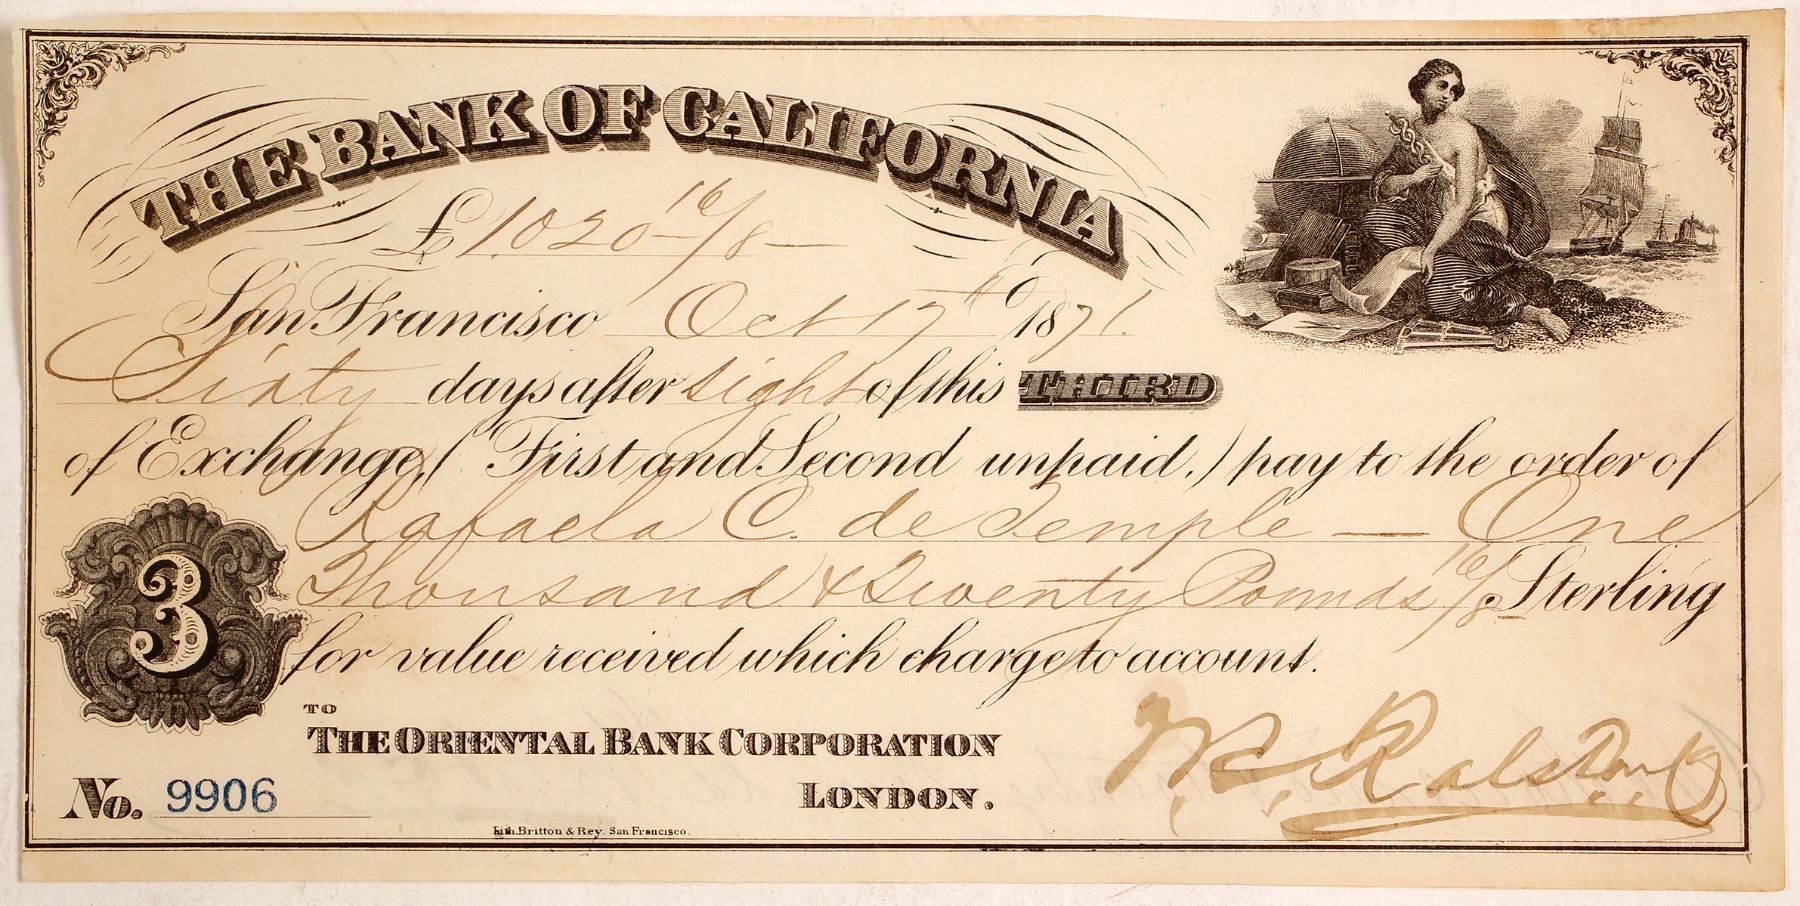 THE BANK OF CALIFORNIA
£1,020 - 16/8 -
San Francisco Oct 17th 1871.
Sixty days after sight of this THIRD
of Exchange, (First and Second unpaid,) pay to the order of
Rafaela C. de Temple — One
Thousand & Twenty Pounds 16/8 Sterling
for value received which charge to account.
3
TO
THE ORIENTAL BANK CORPORATION
LONDON.
W. C. Ralston
No. 9906
Lith. Britton & Rey. San Francisco.